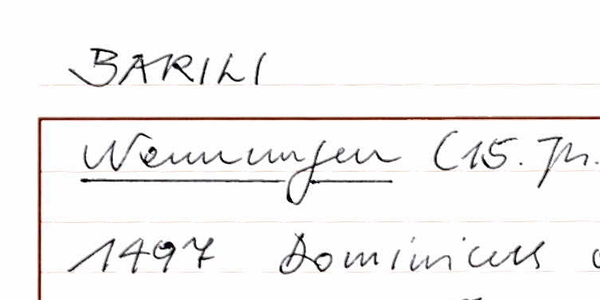 BARILI
Nennungen (15. Jh.
1497 Dominicus